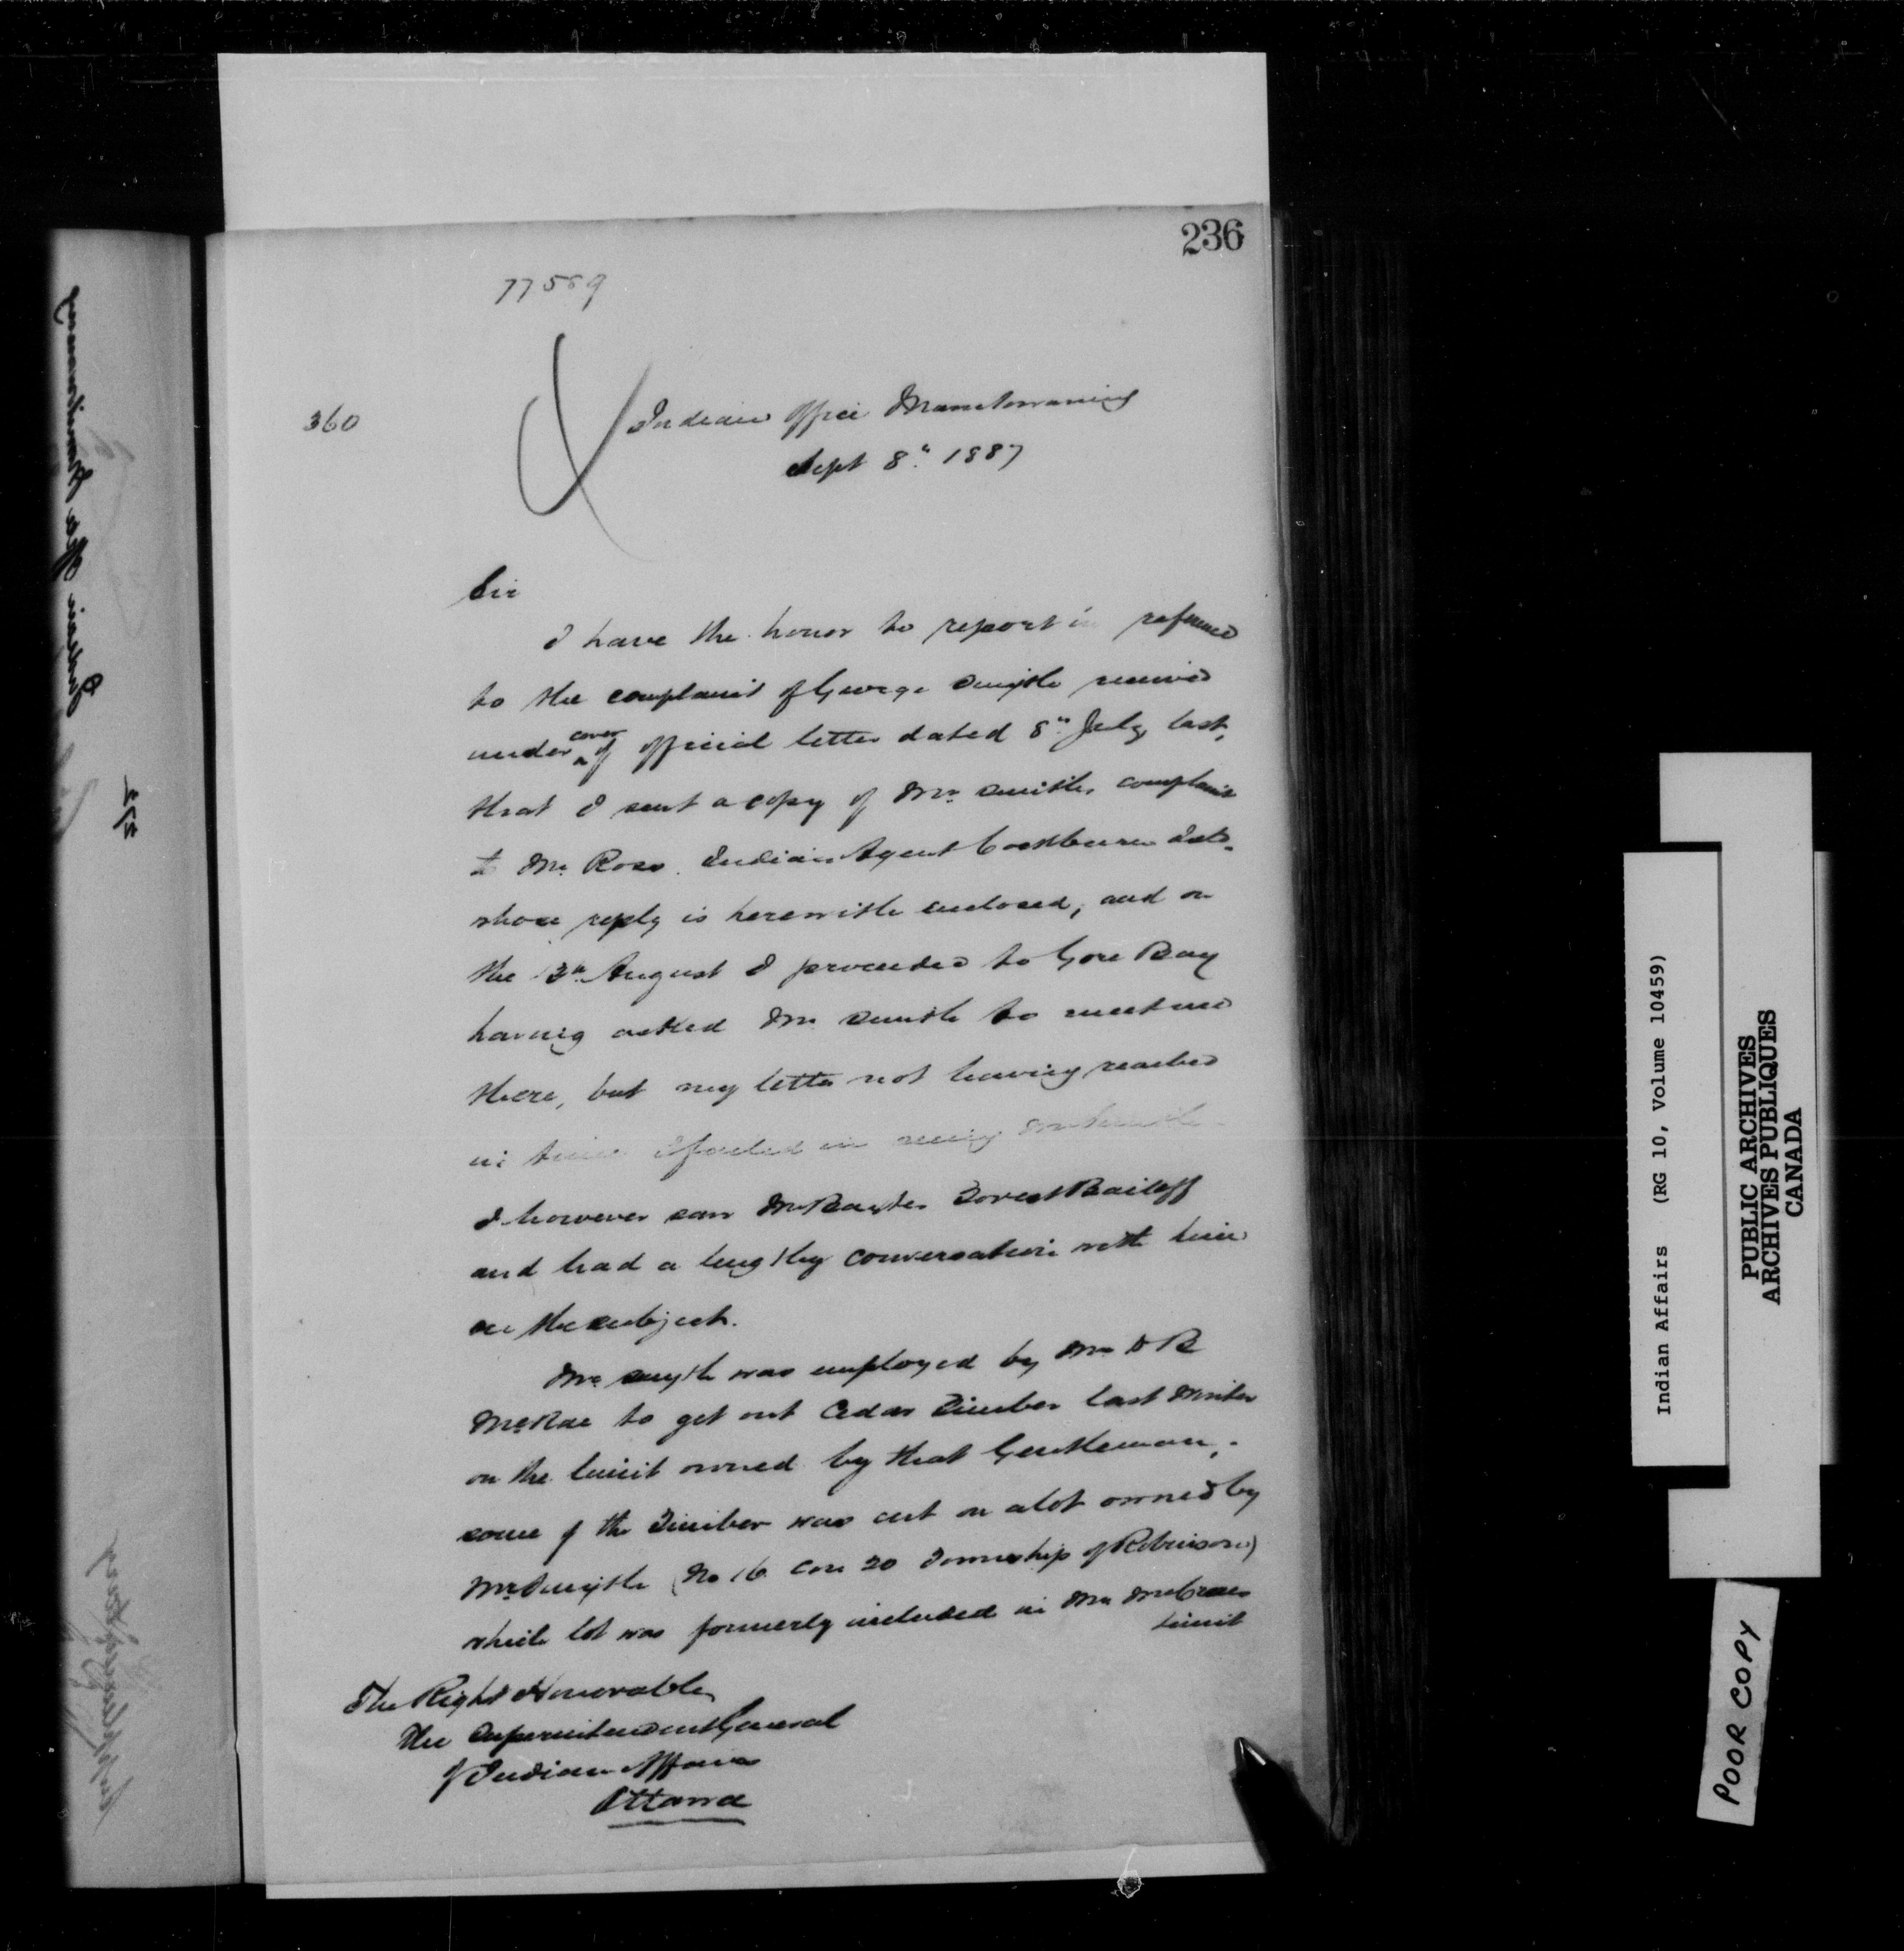 236
77589
360
Indian Office Manitowaning
Sept 8th 1887
Sir
I have the honor to report in reference
to the complaint of George Smyth received
under cover of official letter dated 8th July last,
that I sent a copy of Mr Smith's complaint
to Mr Ross. Indian Agent Cockburn Isld.
whose reply is herewith enclosed, and on
the 13th August I proceeded to Gore Bay
having asked Mr Smith to meet me
there, but my letter not having reached
in time I failed in seeing Mr Smith.
I however saw Mr Baxter Forest Bailiff
and had a lengthy conversation with him
on the subject.
Mr Smyth was employed by Mr D B
McRae to get out Cedar Timber last Winter
on the limit owned by that Gentleman,
some of the Timber was cut on a lot owned by
Mr Smyth (No 16 Con 20 Township of Robinson)
which lot was formerly included in Mr McCraes
limit
The Right Honorable
The Superintendent General
of Indian Affairs
Ottawa
Indian Affairs (RG 10, Volume 10459)
PUBLIC ARCHIVES
ARCHIVES PUBLIQUES
CANADA
POOR COPY